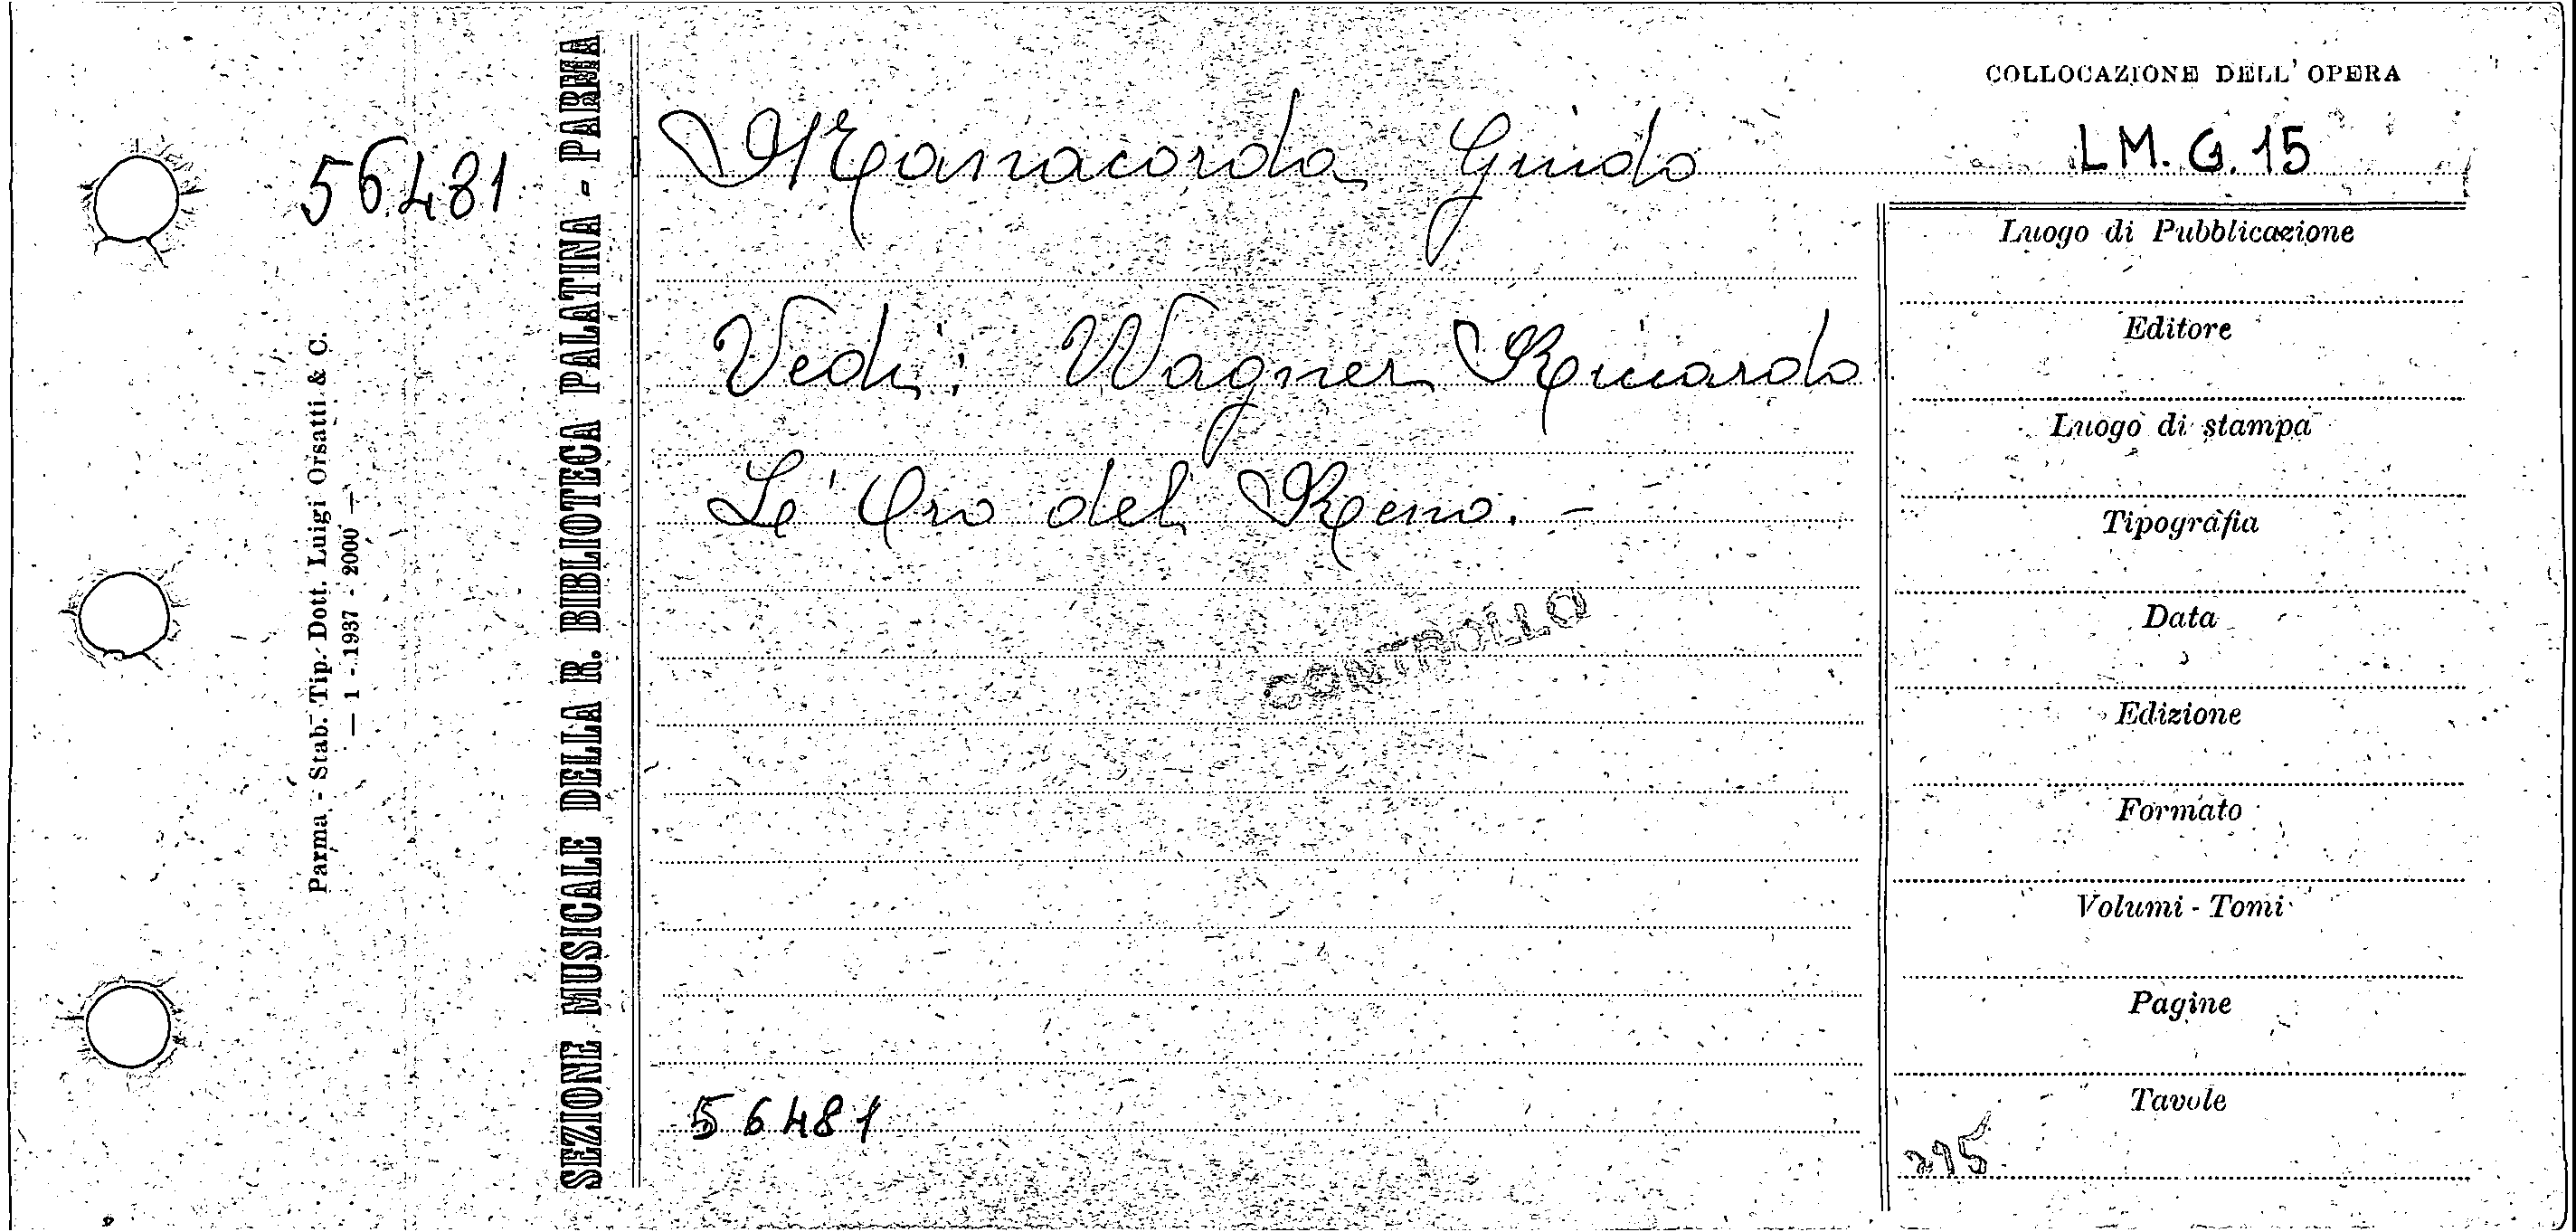 56481
Parma - Stab. Tip. Dott. Luigi Orsatti & C.
— 1 - 1937 - 2000 —
SEZIONE MUSICALE DELLA R. BIBLIOTECA PALATINA - PARMA
Manacorda Guido
Vedi: Wagner Riccardo
Le' Oro del Reno. -
CONTROLLO
56481
COLLOCAZIONE DELL' OPERA
LM. G. 15
Luogo di Pubblicazione
Editore
Luogo di stampa
Tipografia
Data
Edizione
Formato
Volumi - Tomi
Pagine
Tavole
295